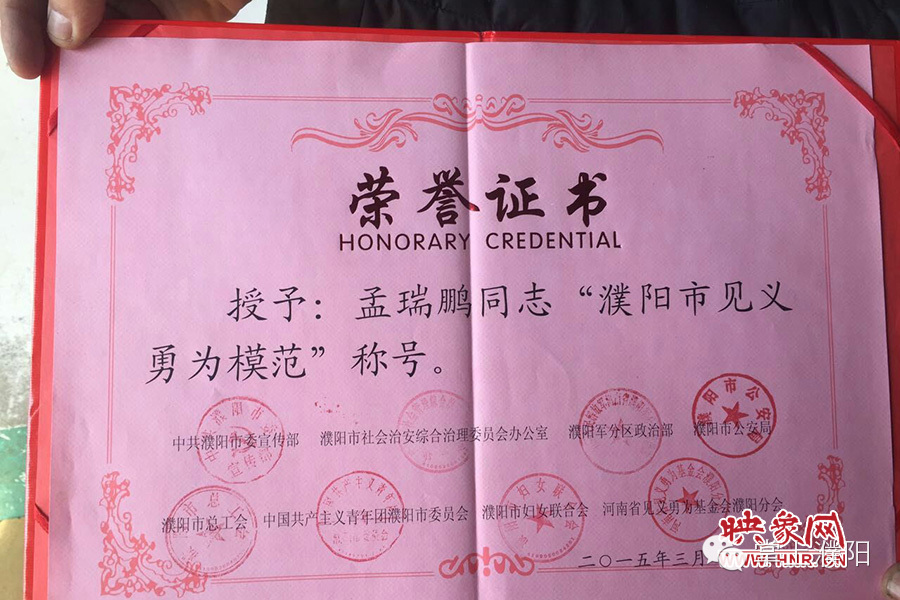 荣誉证书
HONORARY CREDENTIAL
授予：孟瑞鹏同志“濮阳市见义
勇为模范”称号。
中共濮阳市委宣传部 濮阳市社会治安综合治理委员会办公室 濮阳军分区政治部 濮阳市公安局
濮阳市总工会 中国共产主义青年团濮阳市委员会 濮阳市妇女联合会 河南省见义勇为基金会濮阳分会
二〇一五年三月
映象网
掌上濮阳
WWW.HNR.CN